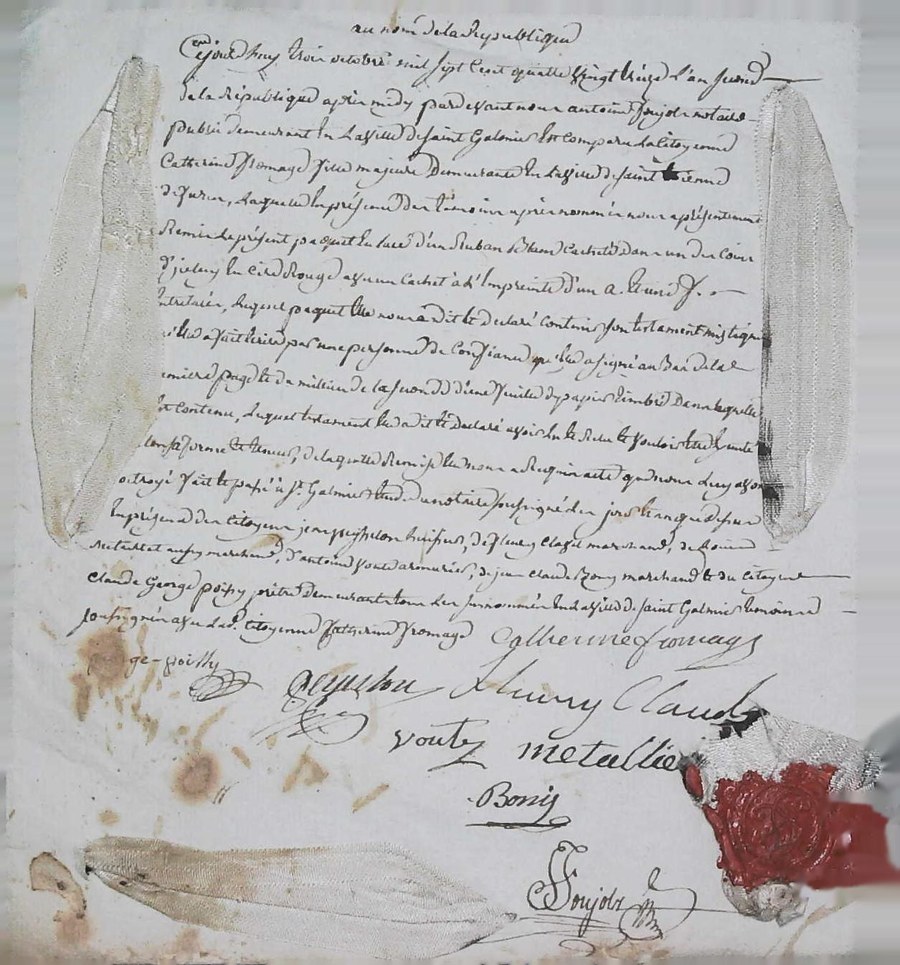 au nom de la Republique
Cejourd'huy trois octobre mil sept cent quatre vingt treize l'an second
de la Republique après midy pardevant nous antoine notaire
public demeurant en la ville de saint Galmier est comparu la citoyenne
Catherine fromage fille majeure demeurante en la ville de saint Etienne
de furan, laquelle en présence des temoins après nommés nous a présentement
Remis le présent paquet en lacé d'un Ruban blanc cacheté dans un des coins
d'icelui en cire Rouge avec un cachet à l'Empreinte d'un a. et une f.
entrelacés, lequel paquet elle nous a dit et declaré contenir son testament mistique
elle a fait écrire par une personne de confiance qu'elle a signé au Bas de la
premiere page et du milieu de la seconde d'une feuille de papier timbré dans laquelle
est contenu, lequel testament elle a dit et declaré avoir lu et Relu et vouloir être exécuté
selon sa forme et teneur, de laquelle Remise elle nous a Requis acte que nous luy avons
octroyé fait et passé à St. Galmier etude du notaire soussigné les jour et an que dessus
en présence des citoyens huissier, de fleury claude marchand, de
metallier aussy marchand, d'antoine voute armurier, de jean claude Bony marchand et du citoyen
claude George poisly prêtre demeurant tous les surnommés en la ville de saint Galmier temoins
soussignés avec lad. citoyenne Catherine fromage Catherine fromage
ge-poisly
fleury Claude
voute metallier
Bony